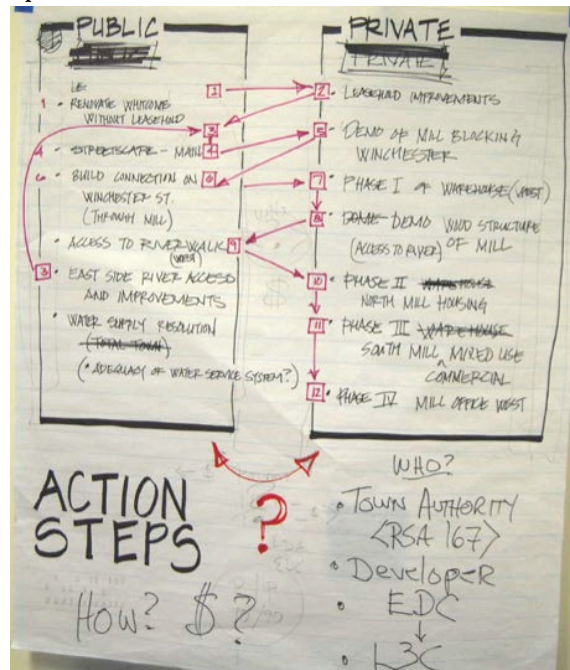 PUBLIC
LE
1 • RENOVATE WHITCOMB
WITHOUT LEASEHOLD
1
3
4 • STREETSCAPE - MAIN 4
6 • BUILD CONNECTION ON 6
WINCHESTER ST.
(THROUGH MILL)
• ACCESS TO RIVERWALK 9
(WEST)
3 • EAST SIDE RIVER ACCESS
AND IMPROVEMENTS
• WATER SUPPLY RESOLUTION
(TOTAL TOWN)
(• ADEQUACY OF WATER SERVICE SYSTEM?)
PRIVATE
PRIVATE
2 • LEASEHOLD IMPROVEMENTS
5 • DEMO OF MILL BLOCKING
WINCHESTER
7 • PHASE I OF WAREHOUSE (WEST)
8 • DEMO WOOD STRUCTURE
(ACCESS TO RIVER) OF MILL
10 • PHASE II WAREHOUSE
NORTH MILL HOUSING
11 • PHASE III WAREHOUSE
SOUTH MILL MIXED USE
COMMERCIAL
12 • PHASE IV MILL OFFICE WEST
?
ACTION
STEPS
HOW? $?
WHO?
• TOWN AUTHORITY
<RSA 167>
• Developer
• EDC
• L3C